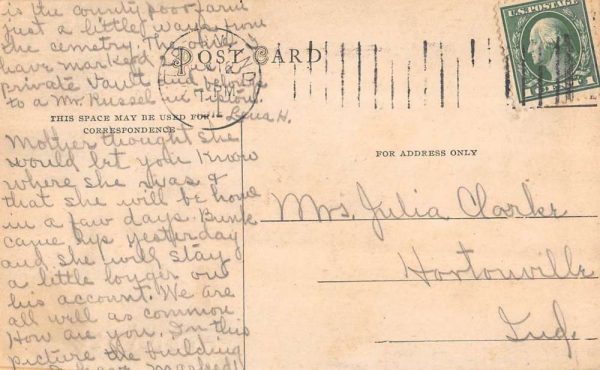 is the county poor farm
just a little ways from
the cemetry. The other I
have marked is a
private vault and belongs
to a Mr. Russel in Tipton.
Lena H.
POST CARD
IND
7 PM
U.S. POSTAGE
1 CENTS 1
THIS SPACE MAY BE USED FOR
CORRESPONDENCE
FOR ADDRESS ONLY
Mother thought she
would let you know
where she was &
that she will be home
in a faw days. Bunk
came up yesterday
and she will stay
a little longer on
his account. We are
all well as common
How are you. In this
picture the building
I have marked
Mrs. Julia Clarke
Hortonville
Ind.